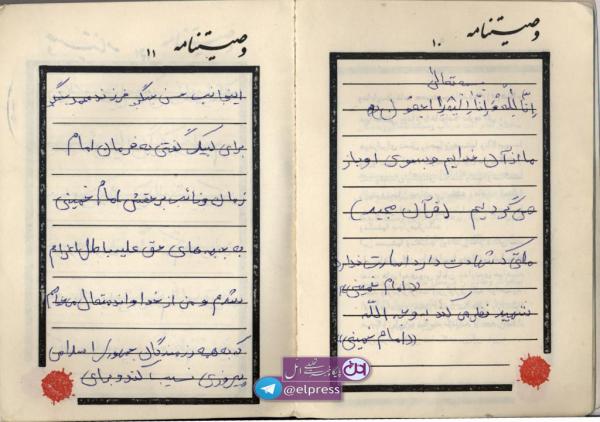 وصیتنامه
۱۰
بسمه تعالی
انا لله و انا الیه راجعون
ما از آن خدایم و بسوی او باز
می گردیم (قرآن مجید)
ملتی که شهادت دارد اسارت ندارد
((امام خمینی))
شهید نظر می کند به وجه الله
((امام خمینی))
وصیتنامه
۱۱
اینجانب حسن فرزند محمد
برای لبیک گفتن به فرمان امام
زمان و نائب برحقش امام خمینی
به جبهه های حق علیه باطل اعزام
شدم و من از خداوند متعال میخواهم
که به همه رزمندگان جمهوری اسلامی
پیروزی نصیب کند و برای
@elpress